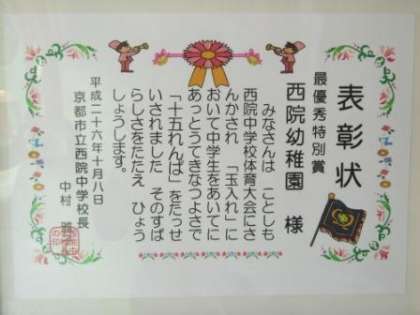 表彰状
最優秀特別賞
西院幼稚園 様
みなさんは ことしも
西院中学校体育大会にさ
んかされ 「玉入れ」に
おいて中学生をあいてに
あっとうてきなつよさで
「十五れんぱ」をたっせ
いされました そのすば
らしさをたたえ ひょう
しょうします。
平成二十六年十月八日
京都市立西院中学校長
中村